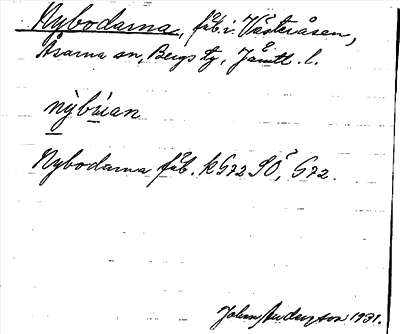 Nybodarna, fäb. i. Västeråsen,
Åsarna sn, Bergs tg, Jämtl. l.
nỳbúan
Nybodarna fäb. k G72 SÖ, G72.
Johan Anderzson 1931.